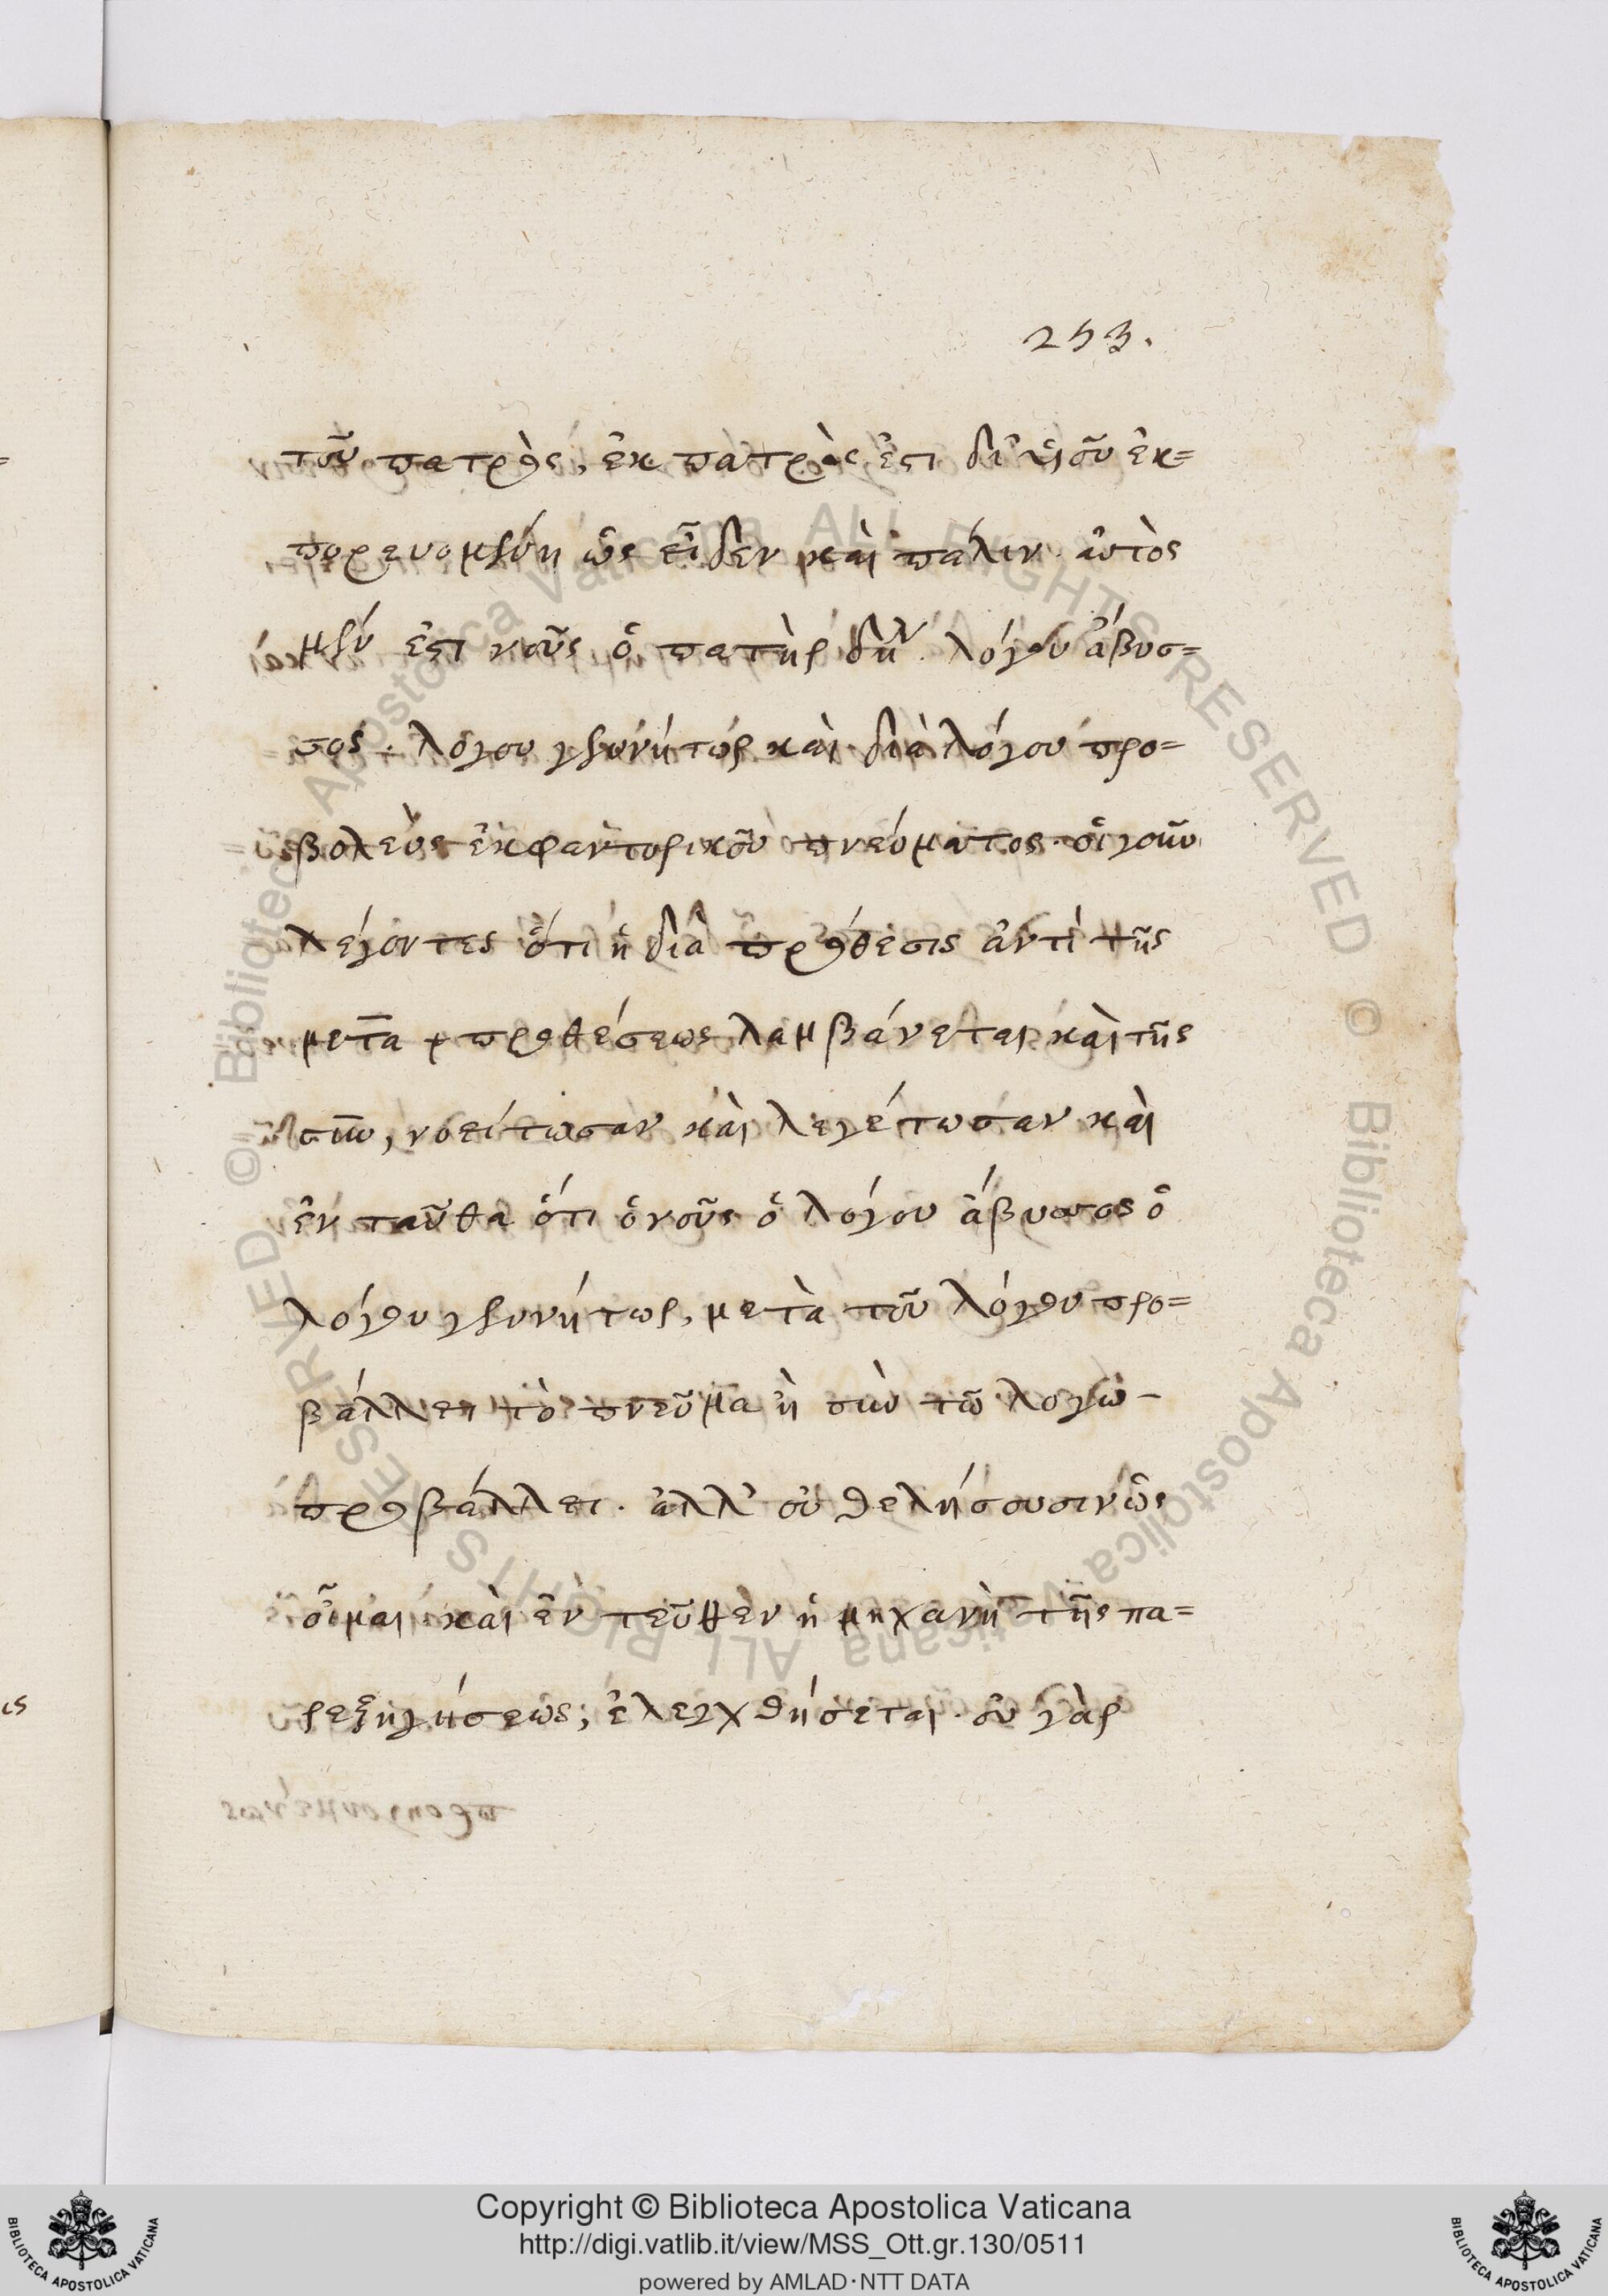 253.
τοῦ πατρὸς, ἐκ πατρὸς ἐστι δι' υἱοῦ ἐκ=
πορευομένη ὡς εἶδεν καὶ πάλιν. αὐτὸς
μέν ἐστι νοῦς ὁ πατὴρ λόγου ἄβυσ=
σος. λόγου γεννήτωρ καὶ διὰ λόγου προ=
βολεὺς ἐκφαντορικοῦ πνεύματος. οἱ γοῦν
λέγοντες ὅτι ἡ διὰ πρόθεσις ἀντὶ τῆς
μετὰ προθέσεως λαμβάνεται καὶ τῆς
σὺν, νοείτωσαν καὶ λεγέτωσαν καὶ
ἐν ταῦθα ὅτι ὁ νοῦς ὁ λόγου ἄβυσσος ὁ
λόγου γεννήτωρ, μετὰ τοῦ λόγου προ=
βάλλει τὸ πνεῦμα ἢ σὺν τῶ λόγω –
προβάλλει. ἀλλ' οὐ θελήσουσιν ὡς
οἶμαι καὶ ἐν τεῦθεν ἡ μηχανὴ τῆς πα=
ρεξηγήσεως; ἐλεγχθήσεται. οὐ γὰρ
Copyright © Biblioteca Apostolica Vaticana
http://digi.vatlib.it/view/MSS_Ott.gr.130/0511
powered by AMLAD·NTT DATA
BIBLIOTECA APOSTOLICA VATICANA
BIBLIOTECA APOSTOLICA VATICANA
© Biblioteca Apostolica Vaticana ALL RIGHTS RESERVED
© Biblioteca Apostolica Vaticana ALL RIGHTS RESERVED